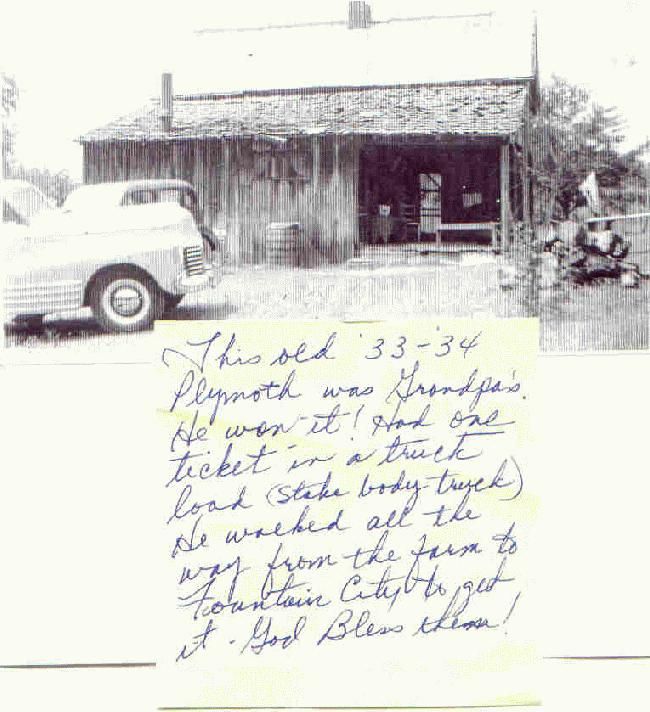 This old '33-'34
Plymoth was Grandpa's.
He won it! Had one
ticket in a truck
load (stake body-truck)
He walked all the
way from the farm to
Fountain City to get
it - God Bless them!